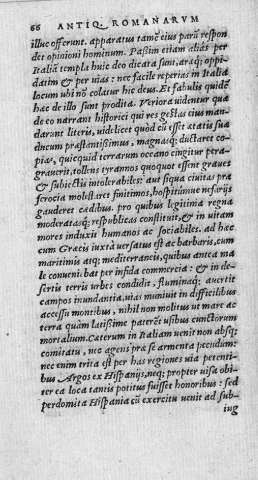 66 ANTIQ. ROMANARVM
illuc offerunt. apparatus tamē eius parū respon
det opinioni hominum. Passim etiam alias per
Italiā templa huic deo dicata sunt, aræq; oppi-
datim & per uias: nec facile reperias in Italia
locum ubi nō colatur hic deus. Et fabulis quidē
hæc de illo sunt prodita. Veriora uidentur quæ
de eo narrant historici qui res gestas eius man-
darunt literis, uidelicet quòd cū esset ætatis suæ
ducum præstantissimus, magnasq; ductaret co-
pias, quicquid terrarum oceano cingitur pera-
grauerit, tollens tyrannos quotquot essent graues
& subiectis intolerabiles: aut siqua ciuitas præ
ferocia molestaret finitimos, hospitūmue nefarijs
gauderet cædibus. pro quibus legitima regna
moderatasq; respublicas constituit, & in uitam
mores induxit humanos ac sociabiles. ad hæc
cum Græcis iuxtà uersatus est ac barbaris, cum
maritimis atq; mediterraneis, quibus antea ma
le conueniebat per infida commercia: & in de-
sertis terris urbes condidit, fluminaq; auertit
campos inundantia, uias muniuit in difficilibus
accessu montibus, nihil non molitus ut mare ac
terra quàm latissime paterēt usibus cunctorum
mortalium. Cæterum in Italiam uenit non absq;
comitatu, nec agens præ se armenta pecudum:
nec enim trita est per has regiones uia petenti-
bus Argos ex Hispanijs, neq; propter uisæ obi-
ter ea loca tantis potitus fuisset honoribus: sed
perdomita Hispania cū exercitu uenit ad sub-
iug